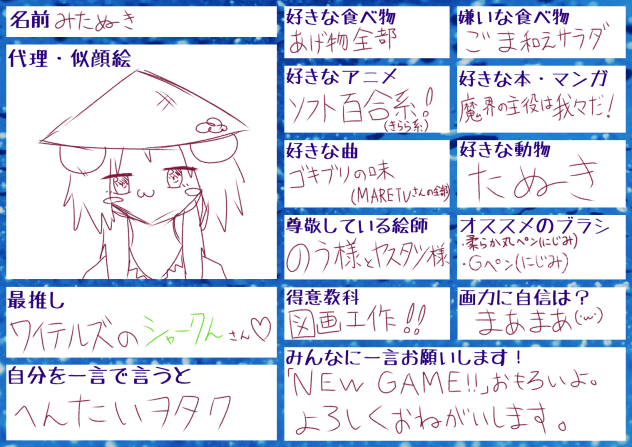 名前 みたぬーき
代理・似顔絵
最推し
ワイテルズのシャークんさん♡
自分を一言で言うと
へんたいヲタク
好きな食べ物
あげ物全部
嫌いな食べ物
ごま和えサラダ
好きなアニメ
ソフト百合系!
(きらら系)
好きな本・マンガ
魔界の主役は我々だ!
好きな曲
ゴキブリの味
(MARETUさんの全部)
好きな動物
たぬーき
尊敬している絵師
のう様とヤスタツ様
オススメのブラシ
・柔らか丸ペン(にじみ)
・Gペン(にじみ)
得意教科
図画工作!!
画力に自信は?
まあまあ(・ω・)
みんなに一言お願いします!
「NEW GAME!!」おもろいよ。
よろしくおねがいします。